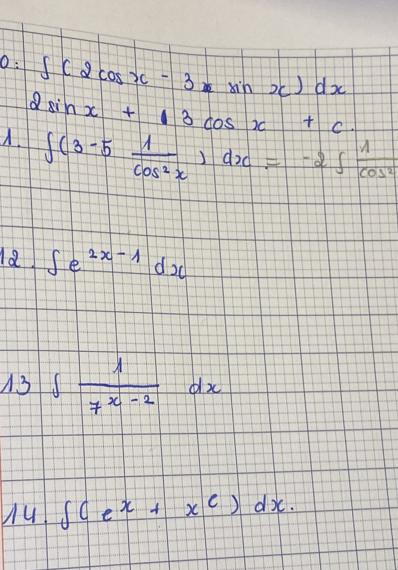 0. ∫(2cos x - 3 sin x) dx
2sin x + 3 cos x + c.
1. ∫(3 - 5 1/cos² x) dx = -2 ∫ 1/cos²
12. ∫e^{2x-1} dx
13 ∫ 1/7^{x-2} dx
14. ∫(e^x + x^e) dx.